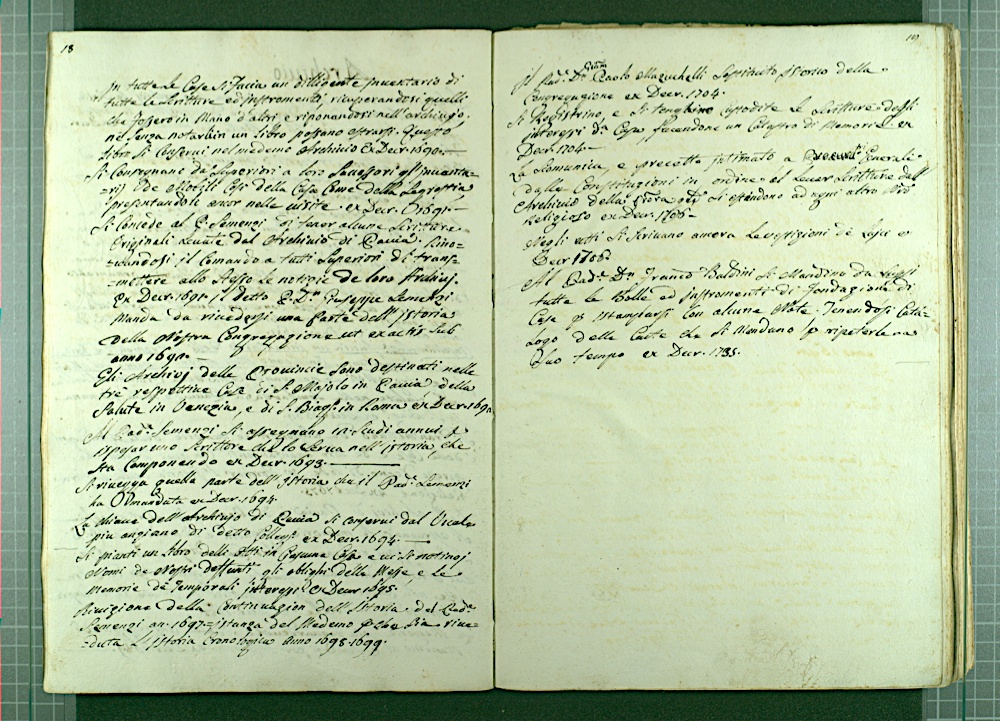 18
In tutte le Case si facia un diligente Inventario di
tutte le scritture ed instromenti, ricuperandosi quelli
che fossero in mano d'altri e riponendosi nell'archivio,
ne senza notarsi in un libro possano estrarsi. Questo
libro si conservi nel medemo Archivio Ex Decr. 1690.
Si consegnano da Superiori a loro Successori gl'Inventa=
=rij de Mobili così della Casa come della Sagrestia
presentandole ancor nelle visite. ex Decr. 1691.
Si concede al P. Semenzi di tener alcune scritture
originali levate dal Archivio di Pavia. Rino=
=vandosi il comando a tutti Superiori di tras=
=mettere allo stesso le notizie de loro Archivj.
ex Decr. 1691. il detto P. Dn Giuseppe Semenzi
manda da rivedersi una parte dell'istoria
della Nostra Congregazione ut ex actis sub
anno 1691.
Gli Archivj delle Provincie sono destinati nelle
tre respettive Case di S. Majolo in Pavia, della
Salute in Venezia, e di S. Biagio in Roma ex Decr. 169
Al Pad. Semenzi si assegnano scudi annui p
uno scrittore che lo serva nell'istoria che
sta componendo ex Decr. 1693.
Si rivegga quella parte dell'istoria che il Pad. Semenzi
ha mandata ex Decr. 1694.
La chiave dell'Archivio di Pavia si conservi dal Vocale
più anziano di detto Colleg. ex Decr. 1694.
Si pianti un libro delli Atti in ciascuna Casa e vi si notino i
Nomi de Nostri defunti, gli oblighi delle Messe, e le
memorie de temporali interessi ex Decr. 1695.
Revizione della continuazion dell'Istoria del Pad.
Semenzi an. 1697. istanza del medemo p che sia rive=
=duta l'istoria cronologica anno 1698. 1699.
19
Il Pad. Dn Gium Paolo Mazuchelli sostituito istorico della
Congregazione ex Decr. 1704.
Si registrino, e si tenghino custodite le scritture degli
interessi di Casa facendone un Catastro di memorie. ex
Decr. 1704
La scomunica, e precetto intimato a Generali
dalle Constituzioni in ordine al levar scritture dall'
Archivio della si estendono ad ogni altro
Religioso ex Decr. 1706.
Negli atti si scrivano ancora le vestizioni de Laici ex
Decr. 1706.
Al Pad. Dn Franco Baldini si mandino da
tutte le bolle ed instromenti di fondazione di
Casa p stamparsi con alcune Note. Tenendosi Cata=
Logo delle Carte che si mandano p ripeterle a
suo tempo ex Decr. 1735.